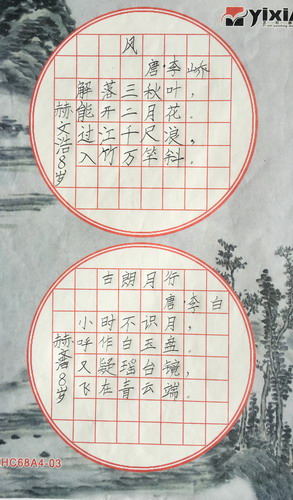 YIXIA
风
唐·李峤
解落三秋叶，
能开二月花。
过江千尺浪，
入竹万竿斜。
赫文浩8岁
古朗月行
唐·李白
小时不识月，
呼作白玉盘。
又疑瑶台镜，
飞在青云端。
赫文浩8岁
HC68A4-03